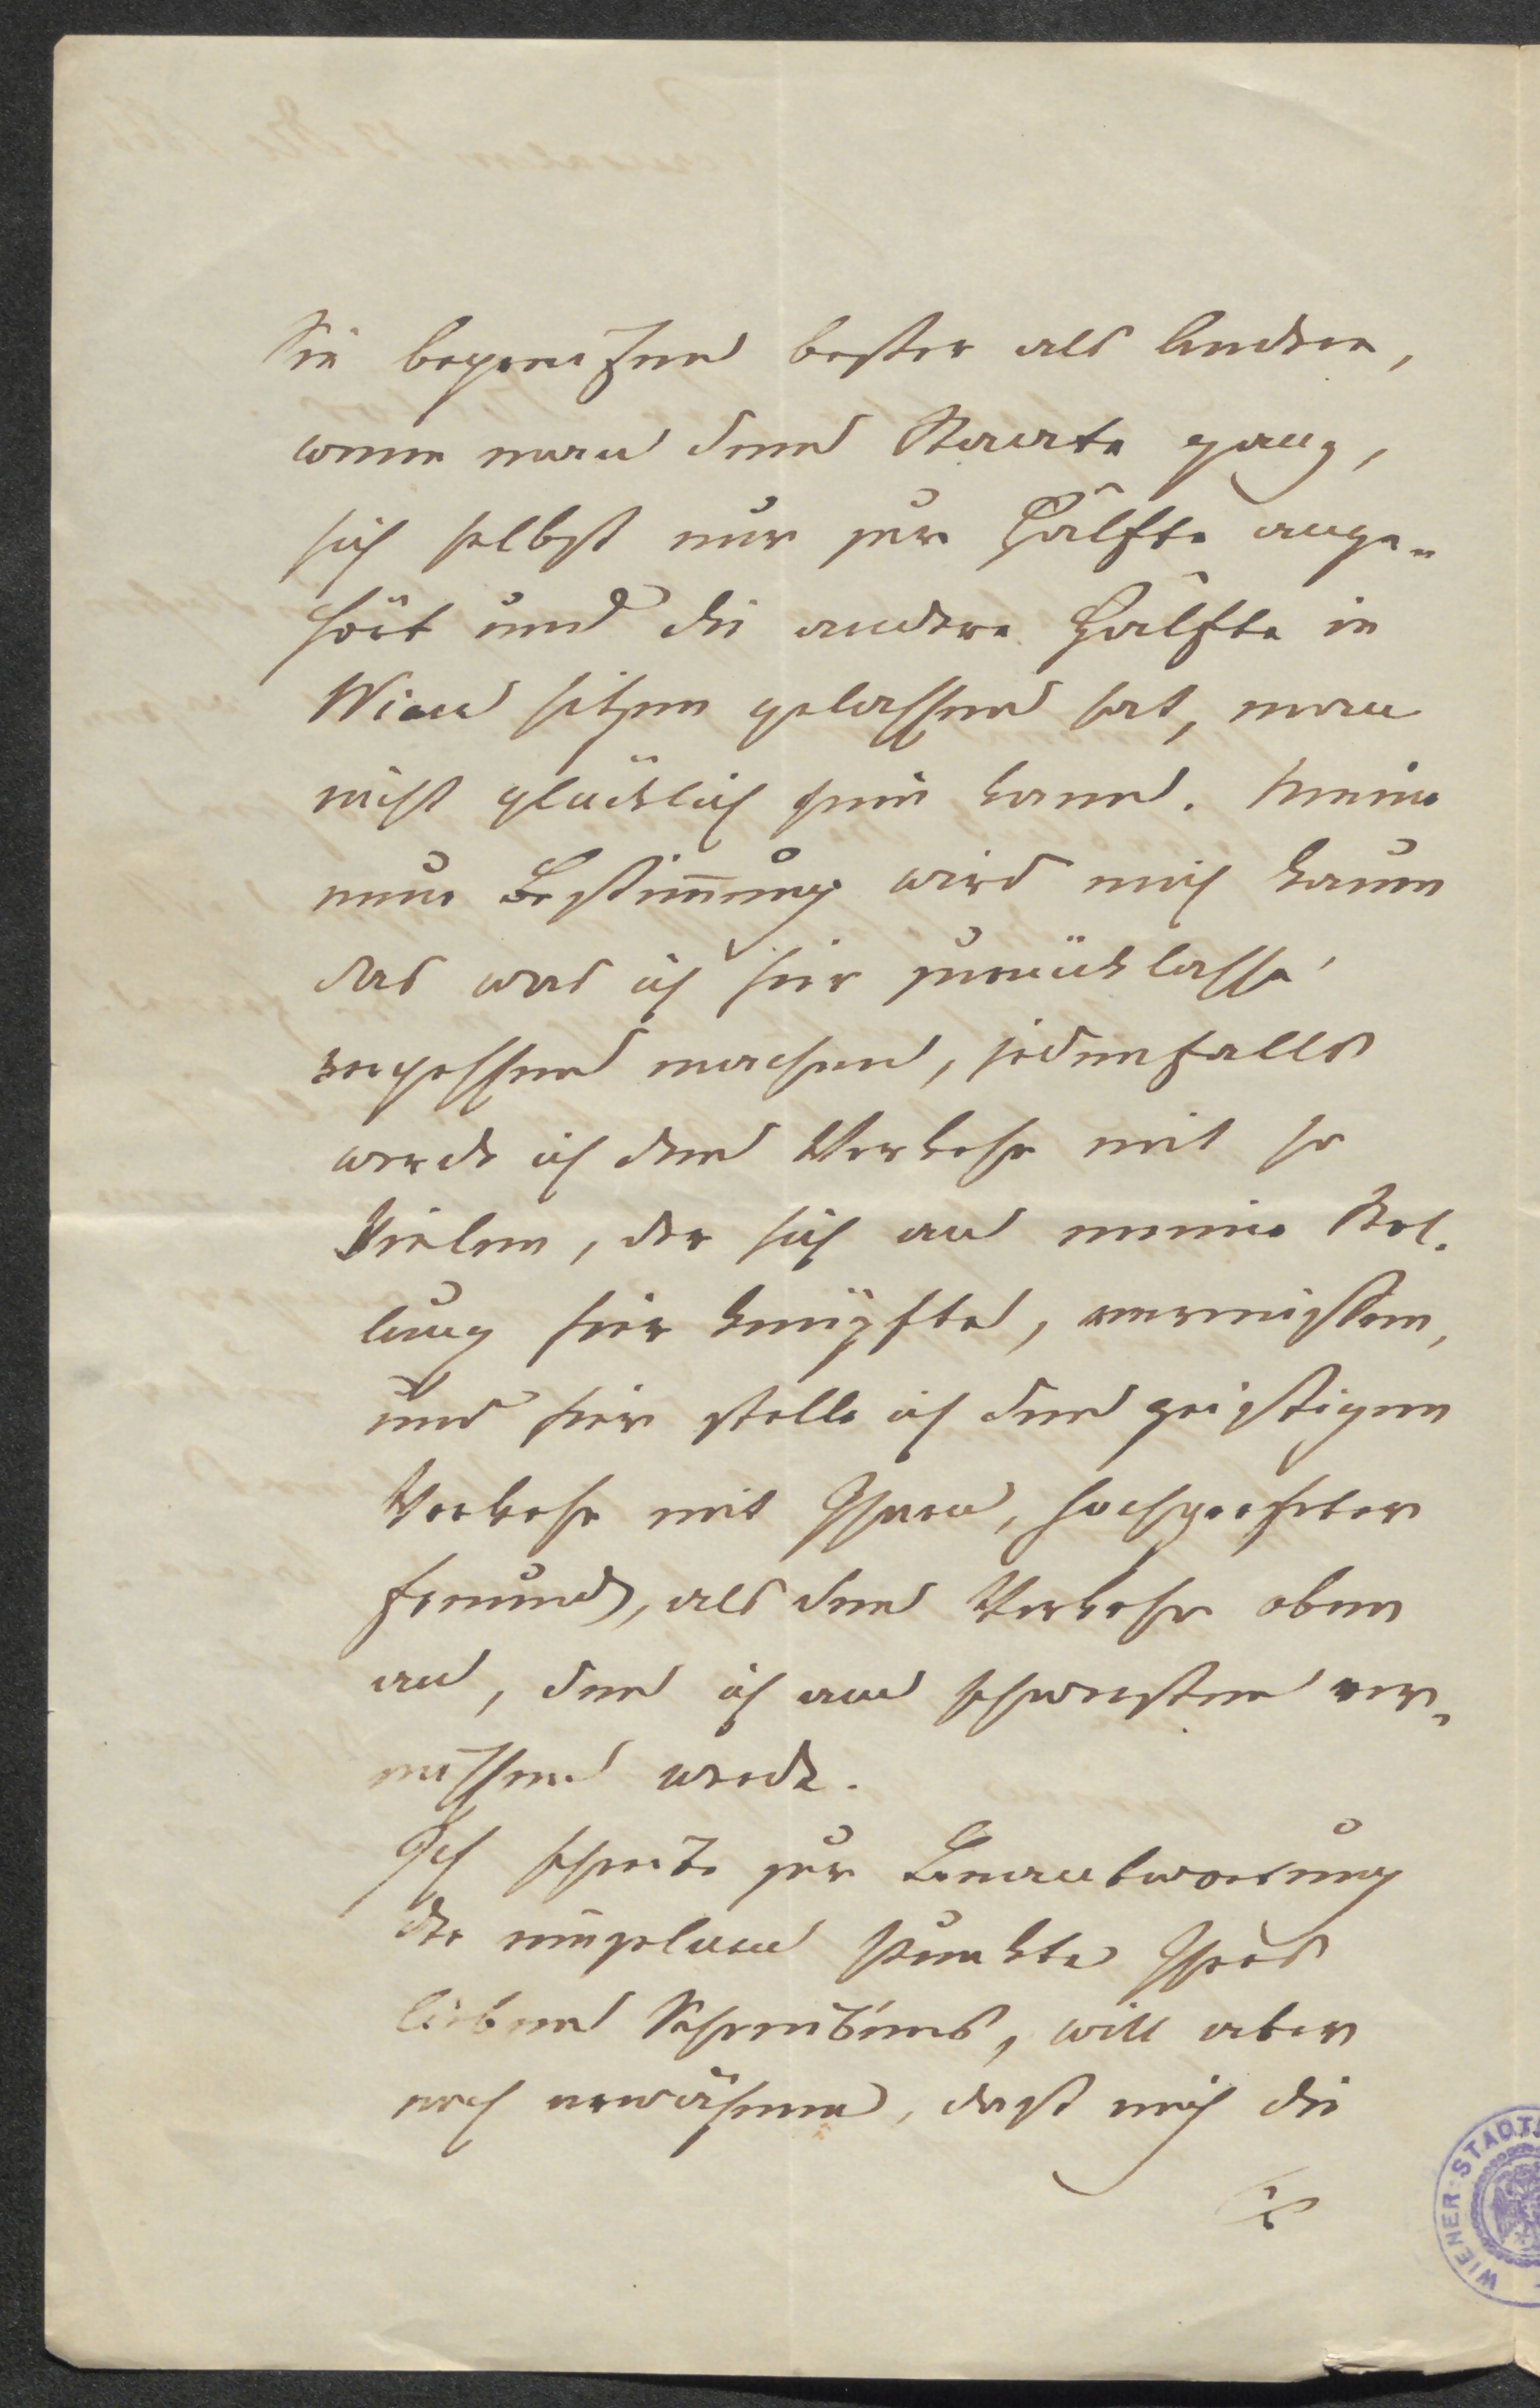 Sie begreifen besser als Andere,
wenn man dem Staate ganz,
sich selbst nur zur Hälfte ange„
hört und die andere Hälfte in
Wien sitzen gelassen hat, man
nicht glücklich sein kann. Meine
neue Bestimmung wird mich kaum
das was ich hier zurücklasse
vergessen machen, jedenfalls
werde ich den Verkehr mit so
Vielen, der sich an meine Stel.
lung hier knüpfte, vermissen,
und hier stelle ich den geistigen
Verkehr mit Ihnen, hochgeehrter
Freund, als den Verkehr oben
an, den ich am schwersten ver„
missen werde.
Ich schreite zur Beantwortung
der einzelnen Punkte Ihres
lieben Schreibens, will aber
noch erwähnen, daß mich die
WIENER STADT